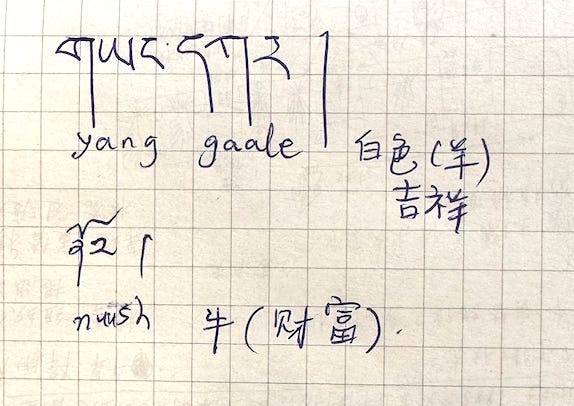 གཡང་དཀར །
yang gaale 白色(羊)
吉祥
ནོར །
nuush 牛(财富).